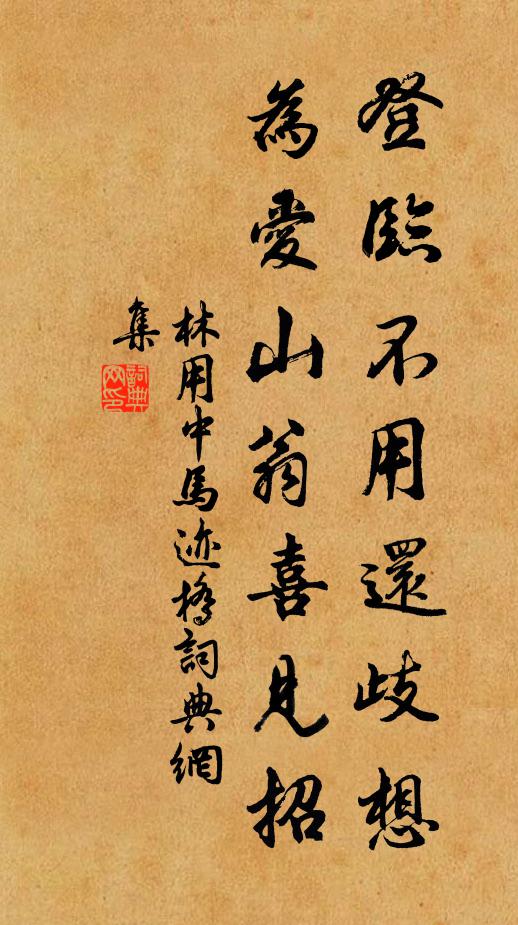 登臨不用還歧想
為愛山翁喜見招
林用中馬迹橋詞典網
集
詞典網印